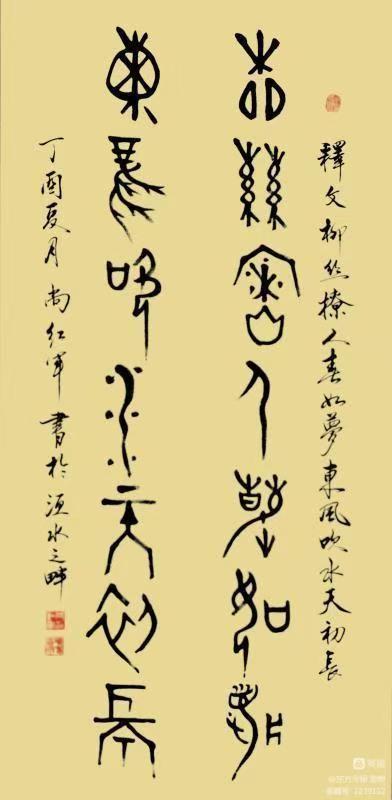 釋文柳丝撩人春如夢東風吹水天初長
柳絲撩人春如夢
東風吹水天初長
丁酉夏月尚红军書於洹水之畔